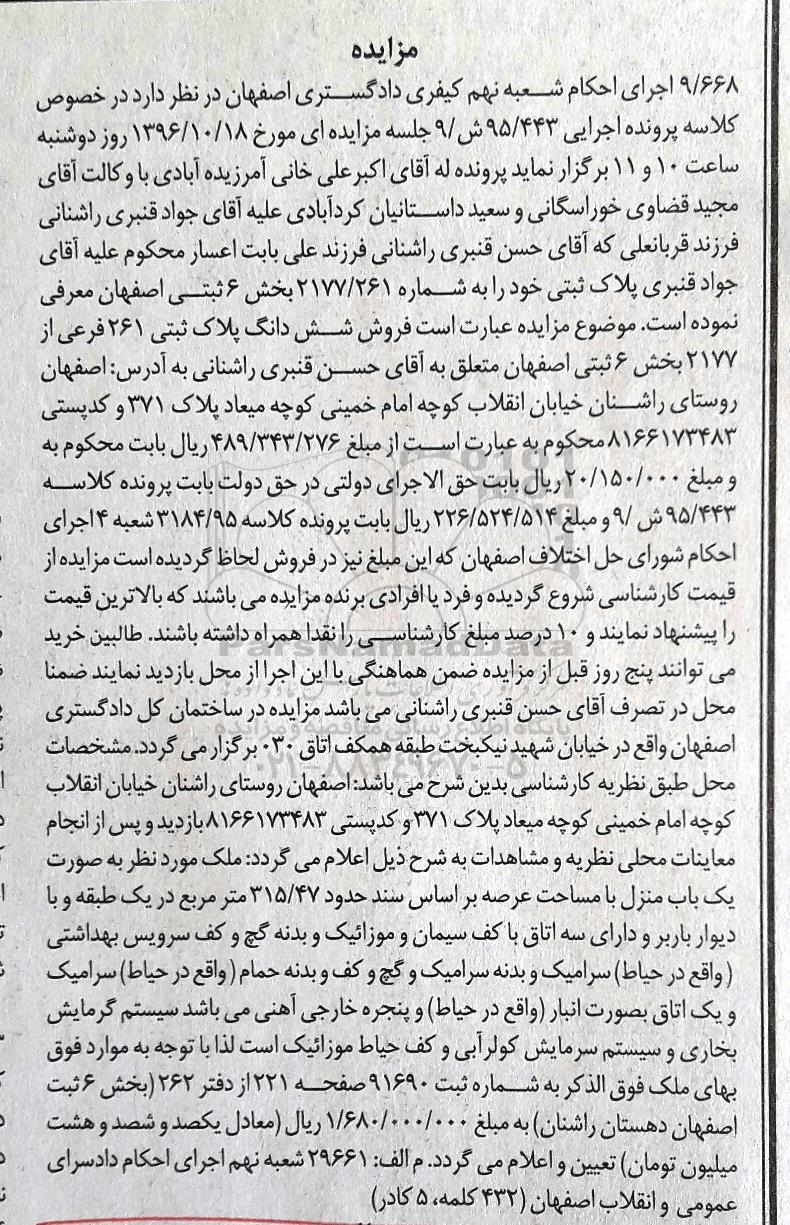 مزایده
۹/۶۶۸ اجرای احکام شعبه نهم کیفری دادگستری اصفهان در نظر دارد در خصوص
کلاسه پرونده اجرایی ۹۵/۴۴۳ش/۹ جلسه مزایده ای مورخ ۱۳۹۶/۱۰/۱۸ روز دوشنبه
ساعت ۱۰ و ۱۱ برگزار نماید پرونده له آقای اکبرعلی خانی آمرزیده آبادی با وکالت آقای
مجید قضاوی خوراسگانی و سعید داستانیان کردآبادی علیه آقای جواد قنبری راشنانی
فرزند قربانعلی که آقای حسن قنبری راشنانی فرزند علی بابت اعسار محکوم علیه آقای
جواد قنبری پلاک ثبتی خود را به شماره ۲۱۷۷/۲۶۱ بخش ۶ ثبتی اصفهان معرفی
نموده است. موضوع مزایده عبارت است فروش شش دانگ پلاک ثبتی ۲۶۱ فرعی از
۲۱۷۷ بخش ۶ ثبتی اصفهان متعلق به آقای حسن قنبری راشنانی به آدرس: اصفهان
روستای راشنان خیابان انقلاب کوچه امام خمینی کوچه میعاد پلاک ۳۷۱ و کدپستی
۸۱۶۶۱۷۳۴۸۳ محکوم به عبارت است از مبلغ ۴۸۹/۳۴۳/۲۷۶ ریال بابت محکوم به
و مبلغ ۲۰/۱۵۰/۰۰۰ ریال بابت حق الاجرای دولتی در حق دولت بابت پرونده کلاسه
۹۵/۴۴۳ش /۹ و مبلغ ۲۲۶/۵۲۴/۵۱۴ ریال بابت پرونده کلاسه ۳۱۸۴/۹۵ شعبه ۴ اجرای
احکام شورای حل اختلاف اصفهان که این مبلغ نیز در فروش لحاظ گردیده است مزایده از
قیمت کارشناسی شروع گردیده و فرد یا افرادی برنده مزایده می باشند که بالاترین قیمت
را پیشنهاد نمایند و ۱۰ درصد مبلغ کارشناسی را نقدا همراه داشته باشند. طالبین خرید
می توانند پنج روز قبل از مزایده ضمن هماهنگی با این اجرا از محل بازدید نمایند ضمنا
محل در تصرف آقای حسن قنبری راشنانی می باشد مزایده در ساختمان کل دادگستری
اصفهان واقع در خیابان شهید نیکبخت طبقه همکف اتاق ۰۳۰ برگزار می گردد. مشخصات
محل طبق نظریه کارشناسی بدین شرح می باشد: اصفهان روستای راشنان خیابان انقلاب
کوچه امام خمینی کوچه میعاد پلاک ۳۷۱ و کدپستی ۸۱۶۶۱۷۳۴۸۳ بازدید و پس از انجام
معاینات محلی نظریه و مشاهدات به شرح ذیل اعلام می گردد: ملک مورد نظر به صورت
یک باب منزل با مساحت عرصه بر اساس سند حدود ۳۱۵/۴۷ متر مربع در یک طبقه و با
دیوار باربر و دارای سه اتاق با کف سیمان و موزائیک و بدنه گچ و کف سرویس بهداشتی
(واقع در حیاط) سرامیک و بدنه سرامیک و گچ و کف و بدنه حمام (واقع در حیاط) سرامیک
و یک اتاق بصورت انبار (واقع در حیاط) و پنجره خارجی آهنی می باشد سیستم گرمایش
بخاری و سیستم سرمایش کولرآبی و کف حیاط موزائیک است لذا با توجه به موارد فوق
بهای ملک فوق الذکر به شماره ثبت ۹۱۶۹۰ صفحه ۲۲۱ از دفتر ۲۶۲ (بخش ۶ ثبت
اصفهان دهستان راشنان) به مبلغ ۱/۶۸۰/۰۰۰/۰۰۰ ریال (معادل یکصد و شصد و هشت
میلیون تومان) تعیین و اعلام می گردد. م الف: ۲۹۶۶۱ شعبه نهم اجرای احکام دادسرای
عمومی و انقلاب اصفهان (۴۳۲ کلمه، ۵ کادر)
ParsNamadData
۰۲۱-۸۸۳۴۹۶۷۰-۵